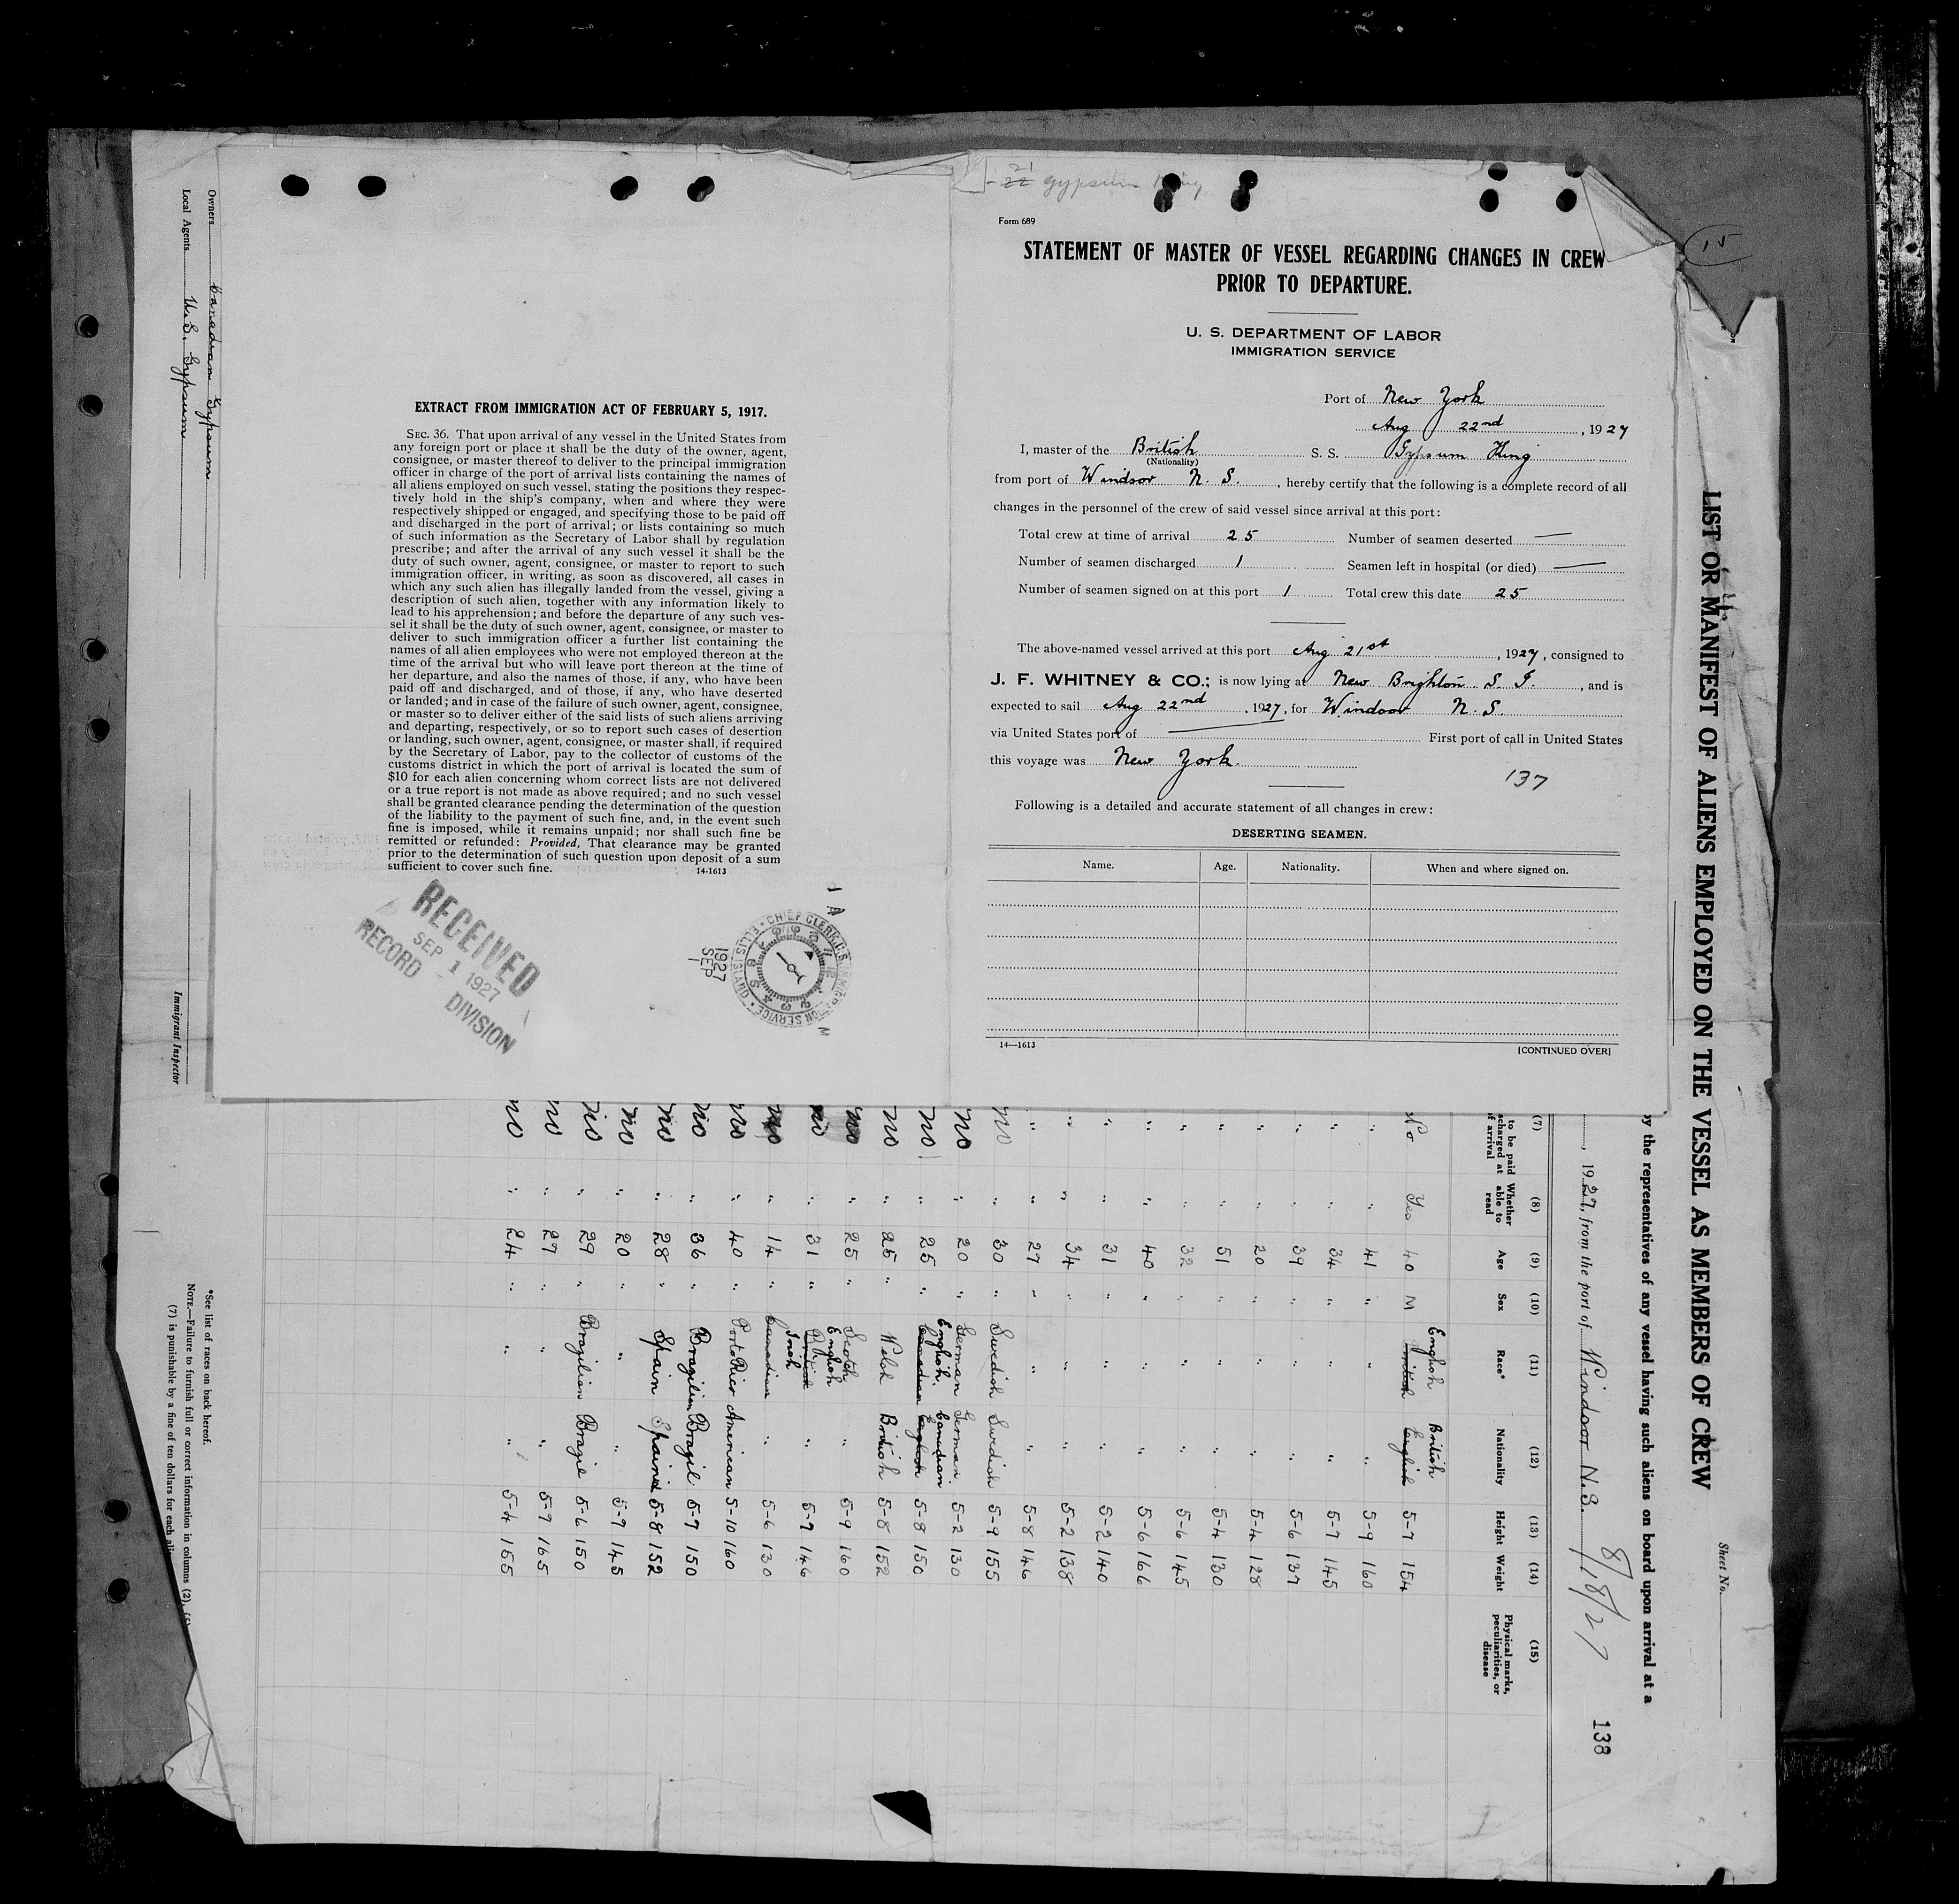 21
22 Gypsum King
Form 689
STATEMENT OF MASTER OF VESSEL REGARDING CHANGES IN CREW
PRIOR TO DEPARTURE.
U. S. DEPARTMENT OF LABOR
IMMIGRATION SERVICE
Port of New York
Aug 22nd, 1927
I, master of the British S. S. Gypsum King
(Nationality)
from port of Windsor N. S., hereby certify that the following is a complete record of all
changes in the personnel of the crew of said vessel since arrival at this port:
Total crew at time of arrival 25 Number of seamen deserted —
Number of seamen discharged 1 Seamen left in hospital (or died) —
Number of seamen signed on at this port 1 Total crew this date 25
The above-named vessel arrived at this port Aug 21st, 1927, consigned to
J. F. WHITNEY & CO.; is now lying at New Brighton S. I., and is
expected to sail Aug 22nd, 1927, for Windsor N. S.
via United States port of — First port of call in United States
this voyage was New York.
137
Following is a detailed and accurate statement of all changes in crew:
DESERTING SEAMEN.
Name. Age. Nationality. When and where signed on.
14—1613 [CONTINUED OVER]
EXTRACT FROM IMMIGRATION ACT OF FEBRUARY 5, 1917.
SEC. 36. That upon arrival of any vessel in the United States from
any foreign port or place it shall be the duty of the owner, agent,
consignee, or master thereof to deliver to the principal immigration
officer in charge of the port of arrival lists containing the names of
all aliens employed on such vessel, stating the positions they respec-
tively hold in the ship's company, when and where they were
respectively shipped or engaged, and specifying those to be paid off
and discharged in the port of arrival; or lists containing so much
of such information as the Secretary of Labor shall by regulation
prescribe; and after the arrival of any such vessel it shall be the
duty of such owner, agent, consignee, or master to report to such
immigration officer, in writing, as soon as discovered, all cases in
which any such alien has illegally landed from the vessel, giving a
description of such alien, together with any information likely to
lead to his apprehension; and before the departure of any such ves-
sel it shall be the duty of such owner, agent, consignee, or master to
deliver to such immigration officer a further list containing the
names of all alien employees who were not employed thereon at the
time of the arrival but who will leave port thereon at the time of
her departure, and also the names of those, if any, who have been
paid off and discharged, and of those, if any, who have deserted
or landed; and in case of the failure of such owner, agent, consignee,
or master so to deliver either of the said lists of such aliens arriving
and departing, respectively, or so to report such cases of desertion
or landing, such owner, agent, consignee, or master shall, if required
by the Secretary of Labor, pay to the collector of customs of the
customs district in which the port of arrival is located the sum of
$10 for each alien concerning whom correct lists are not delivered
or a true report is not made as above required; and no such vessel
shall be granted clearance pending the determination of the question
of the liability to the payment of such fine, and, in the event such
fine is imposed, while it remains unpaid; nor shall such fine be
remitted or refunded: Provided, That clearance may be granted
prior to the determination of such question upon deposit of a sum
sufficient to cover such fine.
14-1613
RECEIVED
SEP 1 1927
RECORD DIVISION
CHIEF CLERK, U.S. IMMIGRATION SERVICE ELLIS ISLAND
1927
SEP
1
15
Sheet No.
LIST OR MANIFEST OF ALIENS EMPLOYED ON THE VESSEL AS MEMBERS OF CREW
by the representatives of any vessel having such aliens on board upon arrival at a
, 1927, from the port of Windsor N.S. 8/18/27
138
(7) (8) (9) (10) (11) (12) (13) (14) (15)
to be paid
charged at
of arrival
Whether able to read
Age
Sex
Race*
Nationality
Height
Weight
Physical marks, peculiarities, or disease
English British
No Yes 40 M British English 5-7 154
" " 41 " " " 5-9 160
" " 34 " " " 5-7 145
" " 39 " " " 5-6 137
" " 20 " " " 5-4 128
" " 51 " " " 5-4 130
" " 32 " " " 5-6 145
" " 40 " " " 5-6 166
" " 31 " " " 5-2 140
" " 34 " " " 5-2 138
" " 27 " " " 5-8 146
no " 30 " Swedish Swedish 5-9 155
no " 20 " German German 5-2 130
English. Canadian
no " 25 " Canadian English 5-8 150
no " 25 " Welsh British 5-8 152
no " 25 " Scotch " 5-9 160
English
no " 31 " British " 5-7 146
Irish
no " 14 " Canadian " 5-6 130
no " 40 " Porto Rico American 5-10 160
no " 36 " Brazilian Brazil 5-7 150
no " 28 " Spain Spained 5-8 152
no " 20 " " " 5-7 145
no " 29 " Brazilian Brazil 5-6 150
no " 27 " " " 5-7 165
no " 24 " " " 5-4 155
Owners Canadian Gypsum
Local Agents U.S. Gypsum
Immigrant Inspector
*See list of races on back hereof.
NOTE.—Failure to furnish full or correct information in columns (2),
(7) is punishable by a fine of ten dollars for each